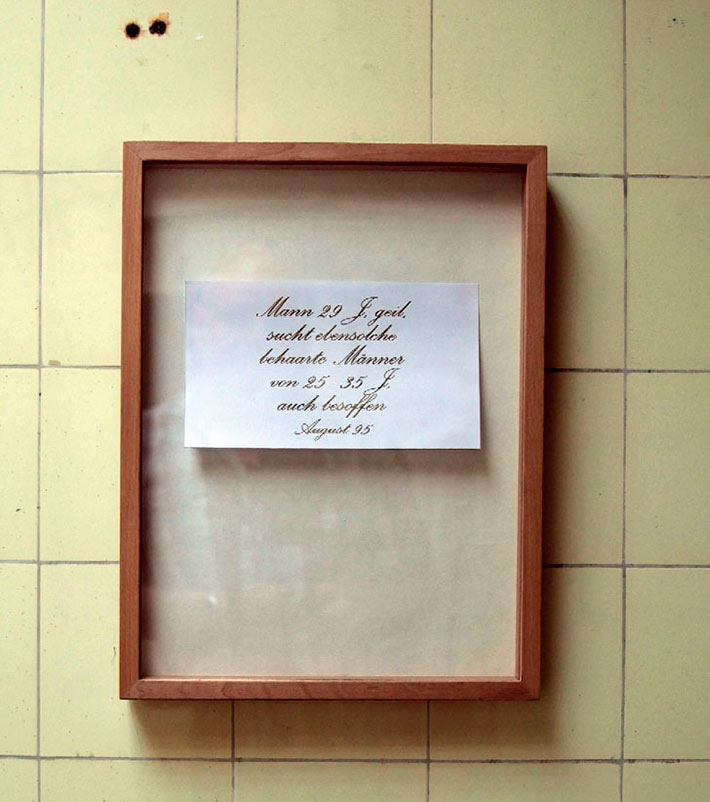 Mann 29 J. geil.
sucht ebensolche
behaarte Männer
von 25 35 J.
auch besoffen
August 95